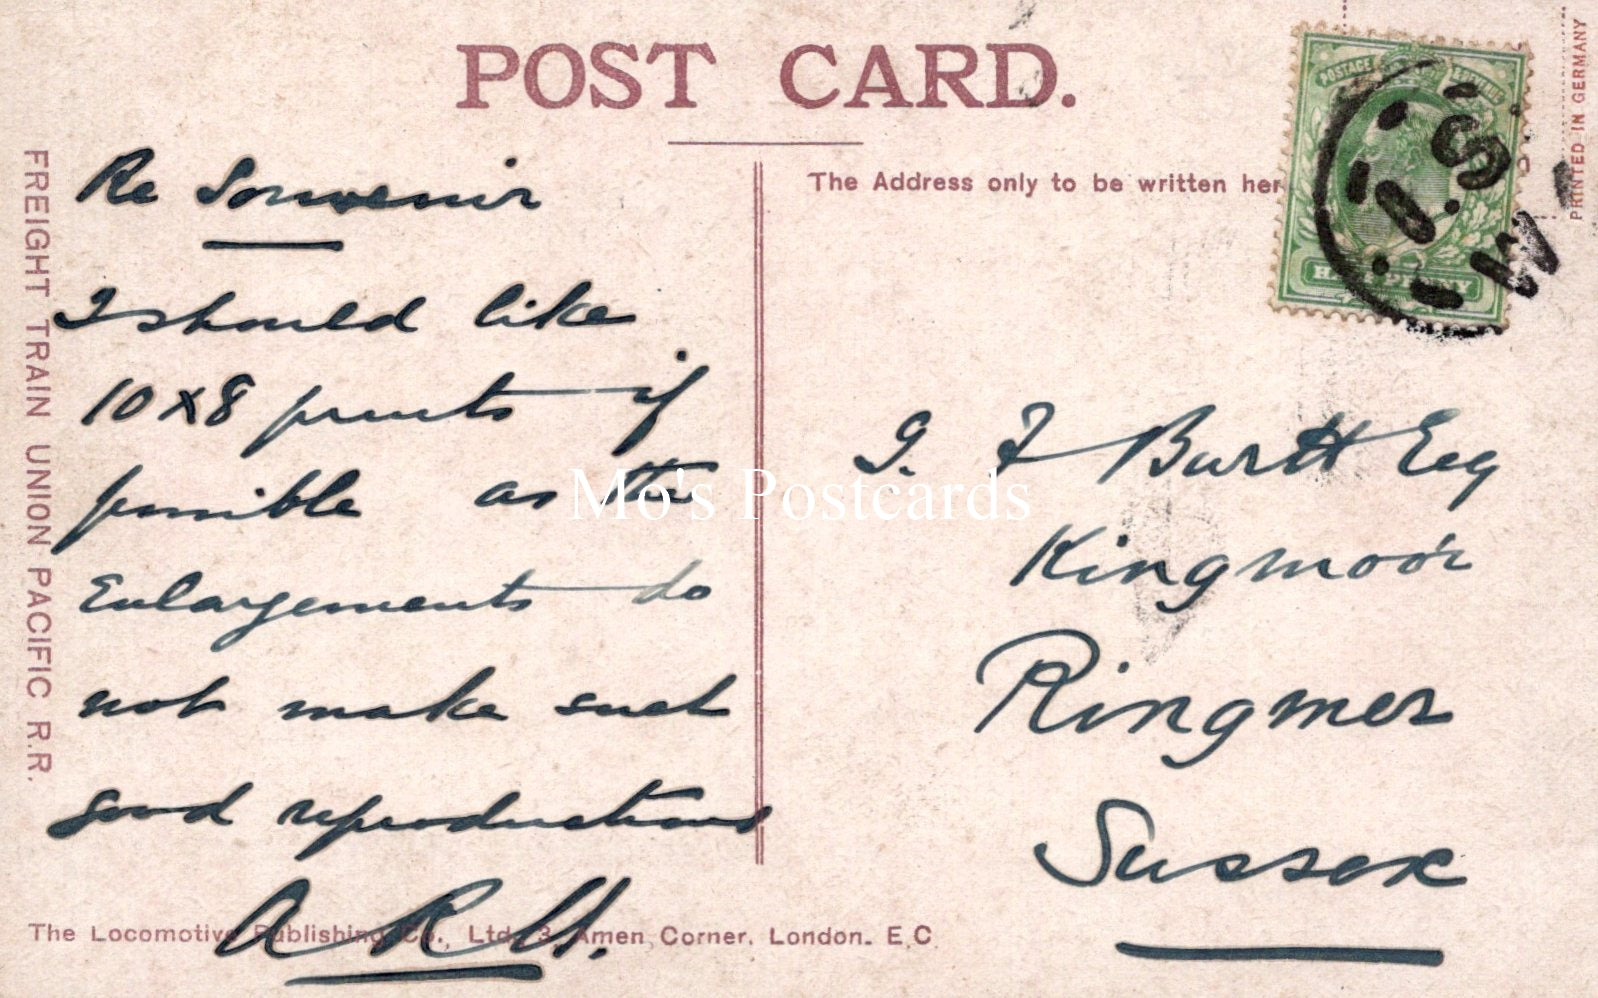 POST CARD.
FREIGHT TRAIN UNION PACIFIC R.R.
The Address only to be written her
PRINTED IN GERMANY
POSTAGE
HALFPENNY
S.W.
Re Souvenir
I should like
10 x 8 prints if
possible as the
Enlargements do
not make such
good reproductions
A R H.
G. F Burtt Esq
Kingmoor
Ringmer
Sussex
The Locomotive Publishing Co., Ltd. 3, Amen Corner. London. E.C
Mo's Postcards